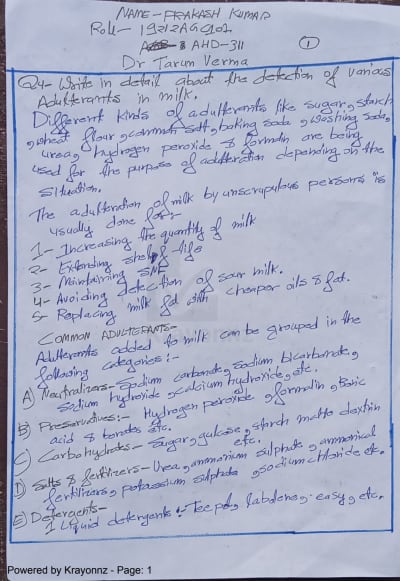 NAME - PRAKASH KUMAR
Roll - 19212AGC101
AHD-311
1
Dr Tarun Verma
Q4- Write in detail about the detection of various
Adulterants in milk.
Different kinds of adulterants like sugar, starch
, wheat flour, common salt, baking soda, washing soda,
urea, hydrogen peroxide & formalin are being
used for the purpose of adulteration depending on the
situation.
The adulteration of milk by unscrupulous persons is
usually done for:-
1- Increasing the quantity of milk
2- Extending shelf life
3- Maintaining SNF
4- Avoiding detection of sour milk.
5- Replacing milk fat with cheaper oils & fat.
COMMON ADULTERANTS-
Adulterants added to milk can be grouped in the
following categories:-
A) Neutralizers- Sodium carbonate, sodium bicarbonate,
sodium hydroxide, calcium hydroxide, etc.
B) Preservatives:- Hydrogen peroxide, formalin, Boric
acid & borates etc.
C) Carbohydrates- Sugar, gulcose, starch malto dextrin
etc.
D) Salts & fertilizers- Urea, ammonium sulphate, ammonical
fertilizers, potassium sulphate, sodium chloride etc.
E) Detergents-
1 Liquid detergents :- Teepol, labolene, easy, etc.
Powered by Krayonnz - Page: 1